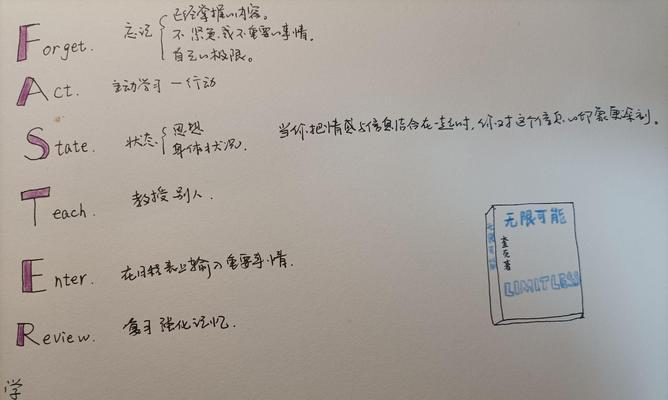 Forget. 忘记 已经掌握的内容。
不紧急或不重要的事情。
自己的极限。
Act. 主动学习—行动
State. 状态 思想
身体状况.
当你把情感与信息结合在一起时,你对这个信息的印象更深刻.
Teach. 教授别人.
Enter. 在日程表上输入重要事情.
Review. 复习 强化记忆.
无限可能
无限可能
著
LIMITLESS
学